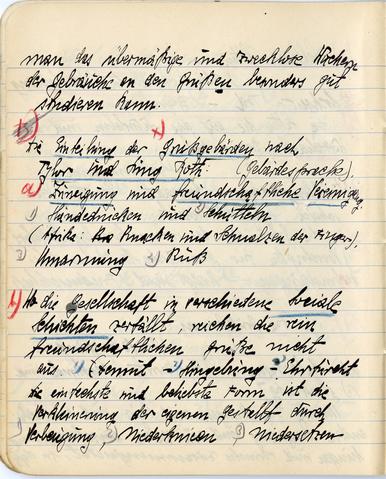 man das übermäßige und zwecklose Wuchern
der Gebräuche an den Grüßen besonders gut
studieren kann.
b)
Die Einteilung der Grußgebärden nach
Tylor und Ling Roth: (Gebärdesprache),
a) Zuneigung und freundschaftliche Vereinigg
1) Händedrücken und Schütteln
(Afrika: Knacken und Schnalzen der Finger),
2) Umarmung 3) Kuß
b) Wo die Gesellschaft in verschiedene soziale
Schichten zerfällt, reichen die rein
freundschaftlichen Grüße nicht
aus. (Demut - Hingebung - Ehrfurcht
die einfachste und beliebteste Form ist die
Verkleinerung der eigenen Gestalt durch
1) Verbeugung, 2) Niederknien 3) Niedersetzen